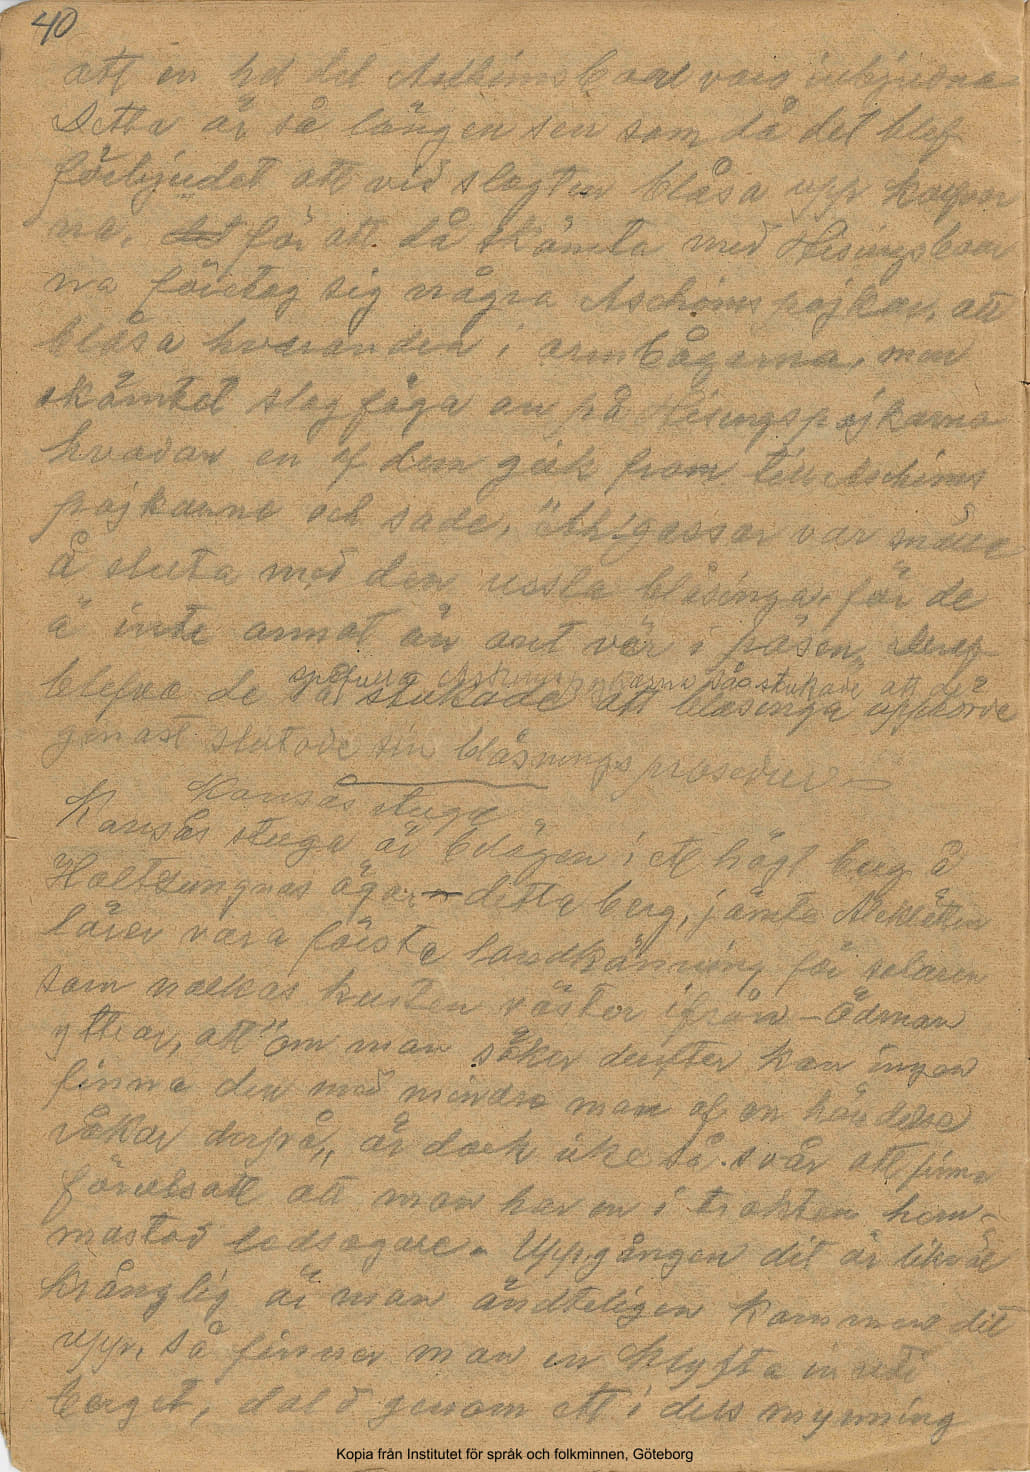 40
att en hel del Aschimsbor voro inbjudna
Detta är så längen sen som då det blef
förbjudet att vid slagten blåsa upp kropar
na, för att då skämta med Hisingsboar
na företog sig några Aschims pojkar, att
blåsa hvarandra i armbågarna, men
skämtet slog föga an på Hisingspojkarna
hvadan en af dem gick fram till Aschims
pojkarne och sade, "Ah! gossar var
å sluta med den ussla blåsinga, för de
ä inte annat än ont vär i påsen„
blefvo de så stukade att blåsinga upphörde
genast slutade sin blåsnings procedur
Kansås stuga
Kansås stuga är belägen i ett högt berg å
Holtljungnas ägor, detta berg, jämte
lärer vara första landkänning för selaren
som nalkas kusten väster ifrån – Ödman
yttrar, att "om man söker derefter kan ingen
finna den med mindre man af en händelse
råkar derpå„ är dock icke så svår att finna
förutsatt att man har en i trakten hem-
mastad ledsagare. Uppgången dit är likväl
krånglig är man ändteligen kommen dit
upp, så finner man en klyfta in uti
berget, dold genom ett i dess mynning
Kopia från Institutet för språk och folkminnen, Göteborg